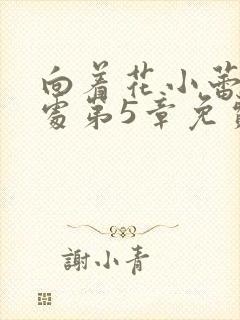 向着花小蕾
处第5章免费
謝小青